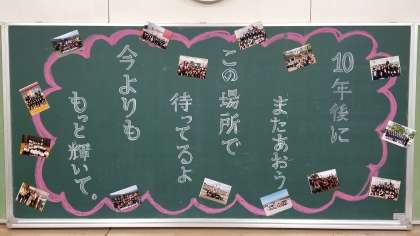 10年後に
またあおう
この場所で
待ってるよ
今よりも
もっと輝いて。